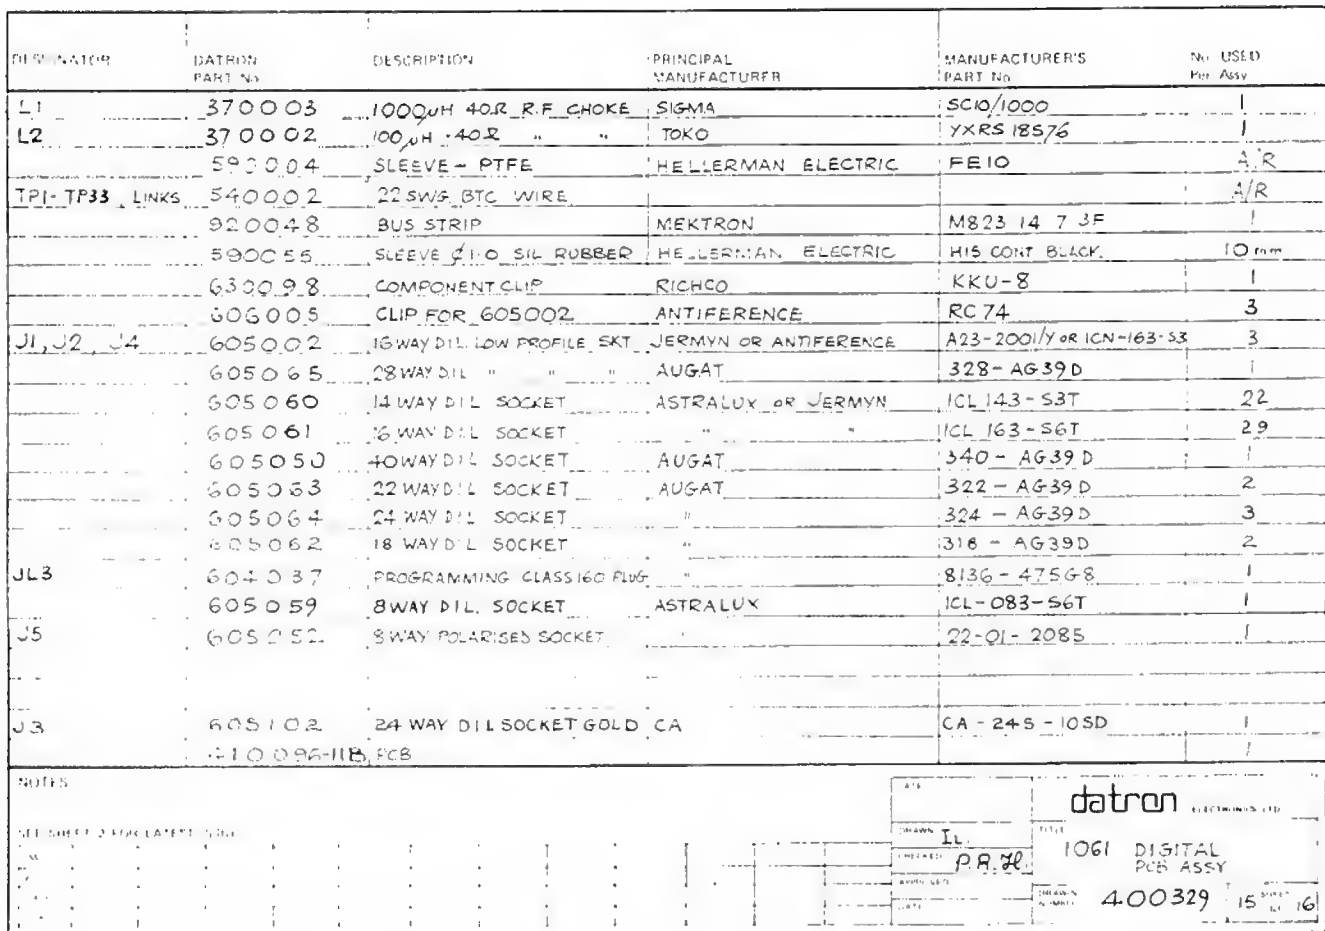 DESIGNATOR DATRON PART No DESCRIPTION PRINCIPAL MANUFACTURER MANUFACTURER'S PART No No. USED Per Assy
L1 370003 1000µH 40Ω R.F. CHOKE SIGMA SC10/1000 1
L2 370002 100µH 40Ω " " TOKO YXRS 18576 1
590004 SLEEVE - PTFE HELLERMAN ELECTRIC FE10 A/R
TP1-TP33, LINKS 540002 22 SWG BTC WIRE A/R
920048 BUS STRIP MEKTRON M823 14 7 3F 1
590055 SLEEVE ¢1.0 SIL RUBBER HELLERMAN ELECTRIC H15 CONT BLACK. 10mm
630098 COMPONENT CLIP RICHCO KKU-8 1
606005 CLIP FOR 605002 ANTIFERENCE RC 74 3
J1, J2, J4 605002 16 WAY DIL LOW PROFILE SKT JERMYN OR ANTIFERENCE A23-2001/Y OR ICN-163-S3 3
605065 28 WAY DIL " " " AUGAT 328-AG39D 1
605060 14 WAY DIL SOCKET ASTRALUX OR JERMYN ICL 143-S3T 22
605061 16 WAY DIL SOCKET " " ICL 163-S6T 29
605050 40 WAY DIL SOCKET AUGAT 340-AG39D 1
605063 22 WAY DIL SOCKET AUGAT 322-AG39D 2
605064 24 WAY DIL SOCKET " 324-AG39D 3
605062 18 WAY DIL SOCKET " 318-AG39D 2
JL3 604037 PROGRAMMING CLASS 160 PLUG " 8136-475G8 1
605059 8 WAY DIL. SOCKET ASTRALUX ICL-083-S6T 1
J5 605052 8 WAY POLARISED SOCKET 22-01-2085 1
J3 605102 24 WAY DIL SOCKET GOLD CA CA-24S-10SD 1
410096-11B PCB 1
NOTES
SEE SHEET 2 FOR LATEST
datron ELECTRONICS LTD
DRAWN I.L.
CHECKED P.R.H.
APPROVED
DATE
TITLE
1061 DIGITAL
PCB ASSY
DRAWING NUMBER 400329 15 16